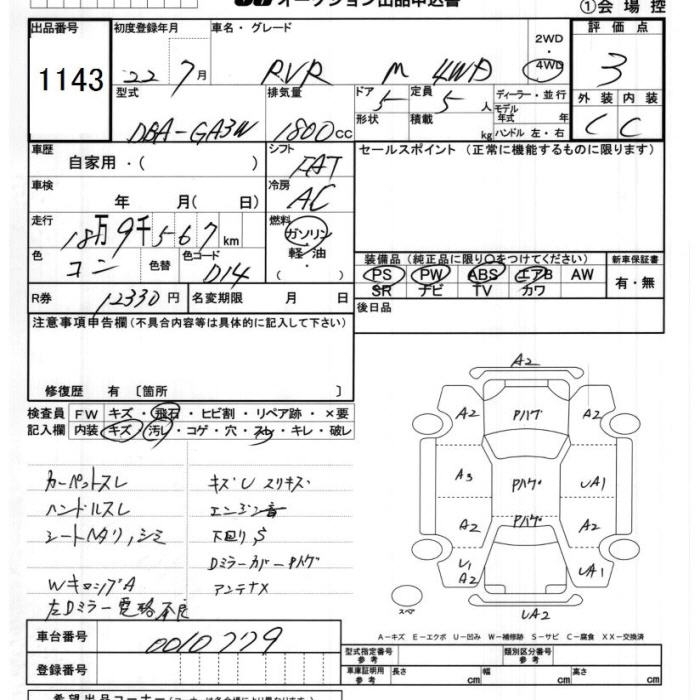 オークション出品申込書
①会場控
出品番号 初度登録年月 車名・グレード 評価点
1143 22 7月 RVR M 4WD 2WD 4WD 3
型式 排気量 ドア 定員 ディーラー・並行 外装 内装
DBA-GA3W 1800cc 5 5人 モデル年式 年 C C
形状 積載 kg ハンドル 左・右
車歴 シフト セールスポイント(正常に機能するものに限ります)
自家用・( ) FAT
車検 冷房
年 月( 日) AC
走行 燃料
18万9千567km ガソリン・軽油
色 色替 色コード 装備品(純正品に限り○をつけてください) 新車保証書
コン D14 PS PW ABS エアB AW 有・無
SR ナビ TV カワ
R券 12330円 名変期限 月 日 後日品
注意事項申告欄(不具合内容等は具体的に記入して下さい)
修復歴 有〔箇所 〕
検査員 FW キズ・飛石・ヒビ割・リペア跡・×要
記入欄 内装 キズ・汚レ・コゲ・穴・スレ・キレ・破レ
カーペットスレ キズU スリキズ
ハンドルスレ エンジン音
シートヘタリ,シミ 下回りS
Dミラーカバーハゲ
アンテナX
左Dミラー電格不良
A2
A2 Pハゲ A2
A3 Pハゲ UA1
A2 Pハゲ A2
U1 A2 UA1
スペア UA2
A-キズ E-エクボ U-凹み W-補修跡 S-サビ C-腐食 XX-交換済
車台番号 0010779
登録番号
型式指定番号 参考 類別区分番号 参考
車庫証明用 参考 長さ cm 幅 cm 高さ cm
希望出品コーナー